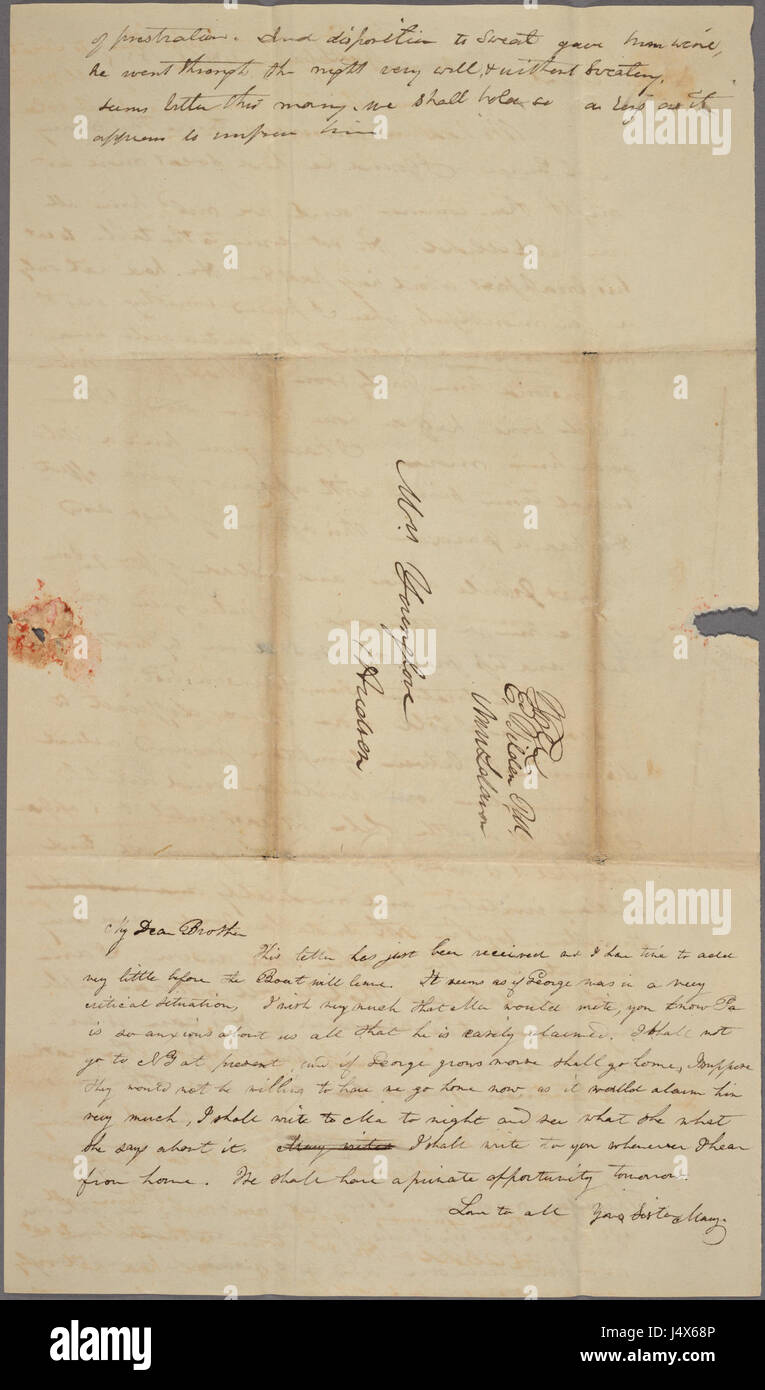 of prostration. And disposition to Sweat gave him wine,
he went through the night very well, & without Sweating.
seems better this morng. we shall hold so as long as it
appears to
Mrs Younglove
Hudson
E Tilden Esq.
New Lebanon
My Dear Brother
This letter has just been received and I have time to add
very little before the Boat will leave. It seems as if George was in a very
critical situation, I wish very much that Ma would write, you know Pa
is so anxious about us all that he is easily alarmed. I shall not
go to NY at present, and if George grows worse shall go home, I suppose
they would not be willing to have me go home now, as it would alarm him
very much, I shall write to Ma to night and see what she what
she says about it. Mary writes I shall write to you whenever I hear
from home. We shall have a private opportunity tomorrow.
Love to all Your Sister Mary.
alamy
alamy stock photo
J4X68P
www.alamy.com